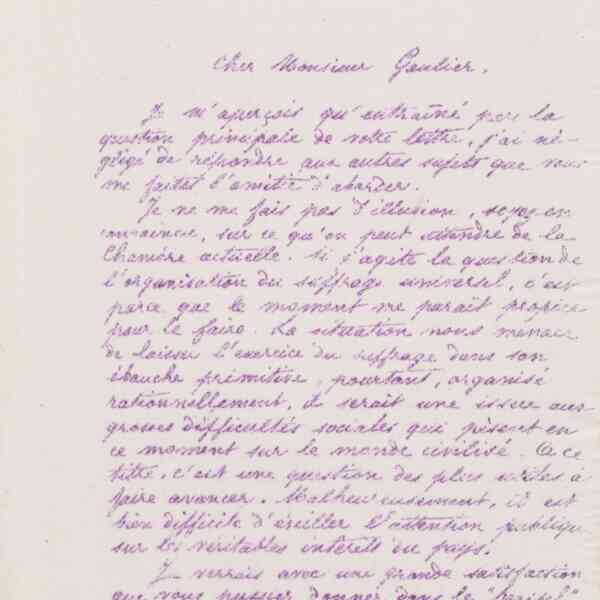 Cher Monsieur Gaulier,
Je m'aperçois qu'entraîné par la
question principale de votre lettre, j'ai né-
gligé de répondre aux autres sujets que vous
me faites l'amitié d'aborder.
Je ne me fais pas d'illusion, soyez en
convaincu, sur ce qu'on peut attendre de la
Chambre actuelle. Si j'agite la question de
l'organisation du suffrage universel, c'est
parce que le moment me paraît propice
pour le faire. La situation nous
de laisser l'exercice du suffrage dans son
ébauche primitive, pourtant, organisé
rationnellement, il serait une issue aux
grosses difficultés sociales qui pèsent en
ce moment sur le monde civilisé. À ce
titre, c'est une question des plus utiles à
faire avancer. Malheureusement, il est
bien difficile d'éveiller l'attention publique
sur les véritables intérêts du pays.
Je verrais avec une grande satisfaction
que vous pussiez donner dans le